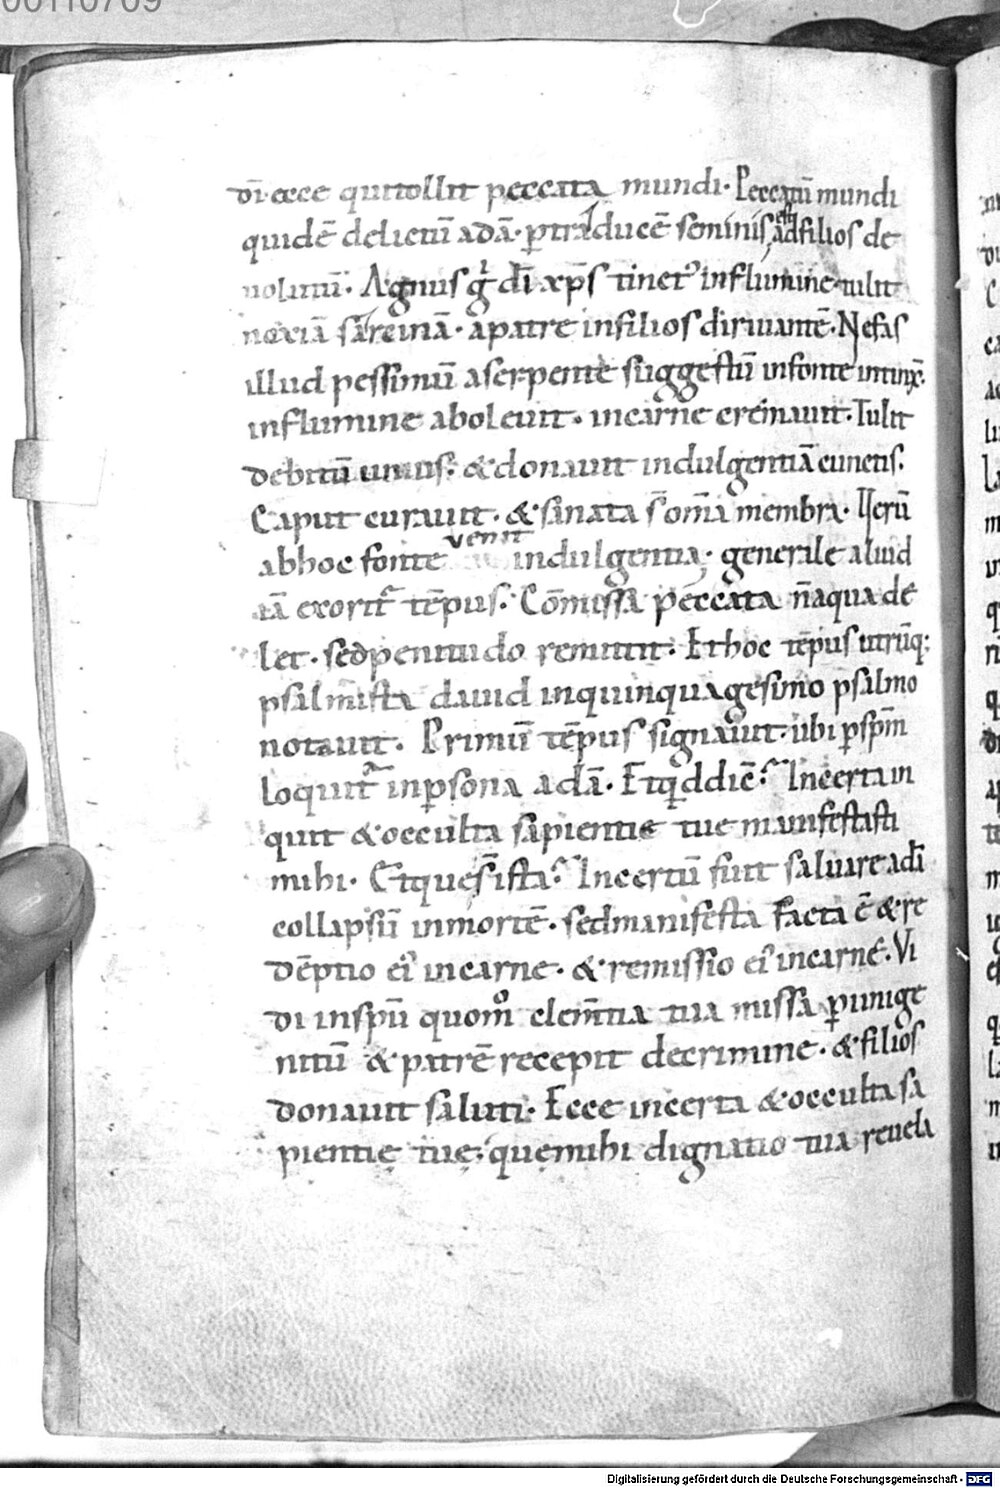 00110709
dī ecce qui tollit peccata mundi. Peccatū mundi
quidē delictū adā. p traducē seminis ad filios de
uolutū. Agnus g dī xp̄s tinctꝰ in flumine tulit
noxiā sarcinā. a patre in filios diriuantē. Nefas
illud pessimū a serpente suggestū in fonte
in flumine aboleuit. in carne cremauit. Tulit
debitū unius. & donauit indulgentiā cunctis.
Caput curauit. & sanata s̄ om̄a membra. Verū
ab hoc fonte venit indulgentia. generale aliud
iā exorit̄ tēpus. Cōmissa peccata n̄ aqua de
let. sed penitudo remittit. Et hoc tēpus utrūq;
psalmista dauid in quinquagesimo psalmo
notauit. Primū tēpus signauit. ubi p sp̄m
loquit̄ in psona adā. Et qd dic̄. Incerta in
quit & occulta sapientie tue manifestasti
mihi. s̄ ista. Incertū fuit saluare adā
collapsū in mortē. sed manifesta facta ē & re
dēptio ei in carne. & remissio ei in carne. Vi
di in spū quom̊ clem̄tia tua missa p unige
nitū & patrē recepit de crimine. & filios
donauit saluti. Ecce incerta & occulta sa
pientię tuę. quę mihi dignatio tua reuela
Digitalisierung gefördert durch die Deutsche Forschungsgemeinschaft - DFG